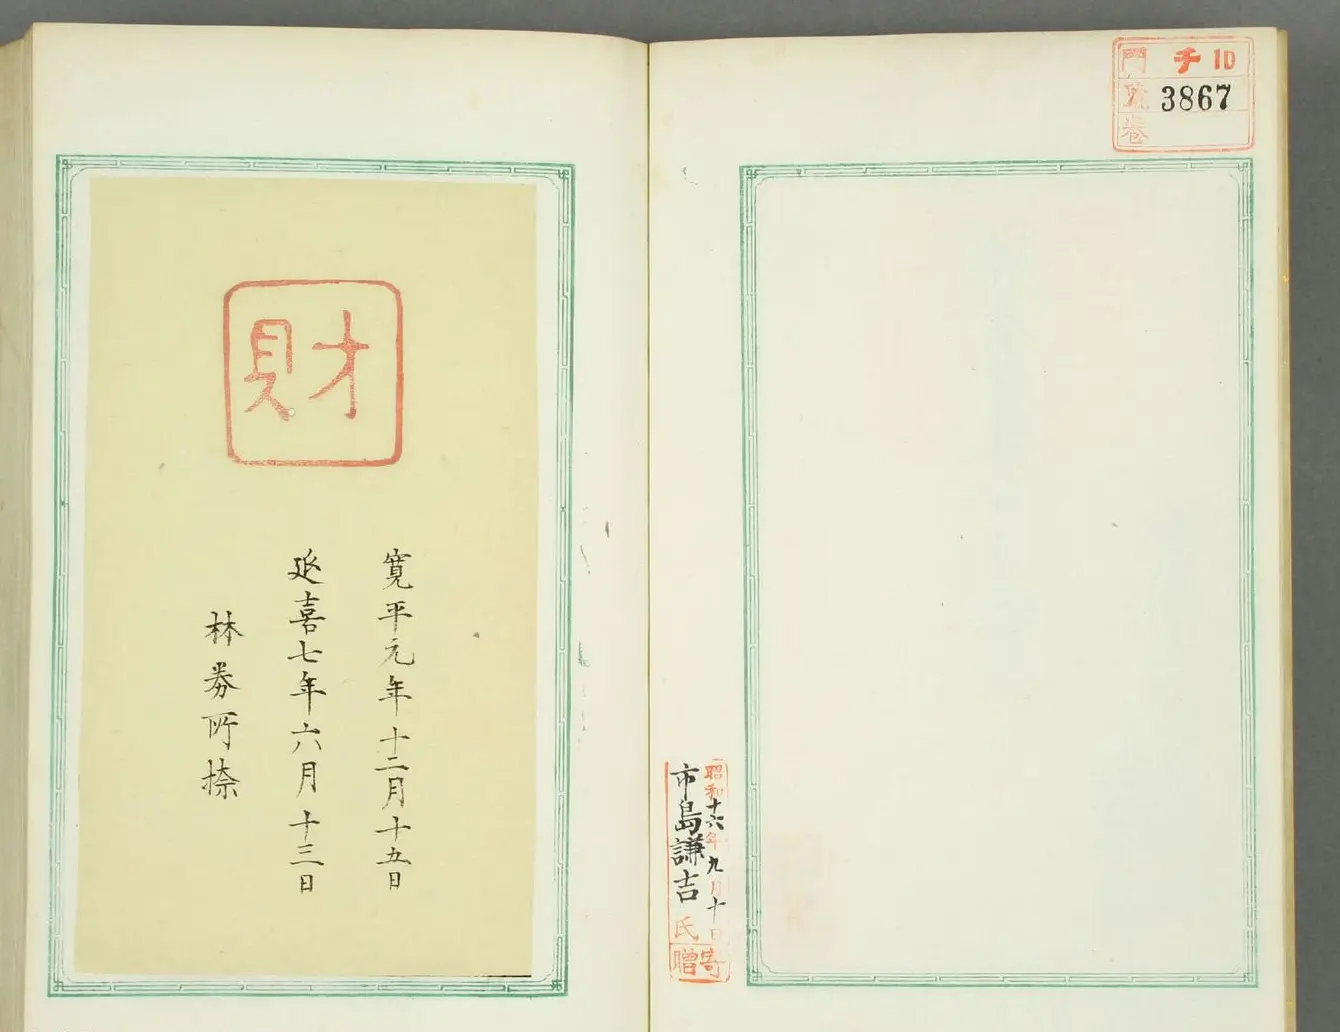 門 チ 10
號 3867
卷
昭和十六年九月十日
市島謙吉氏
寄贈
財
寛平元年十二月十五日
延喜七年六月十三日
林券所捺